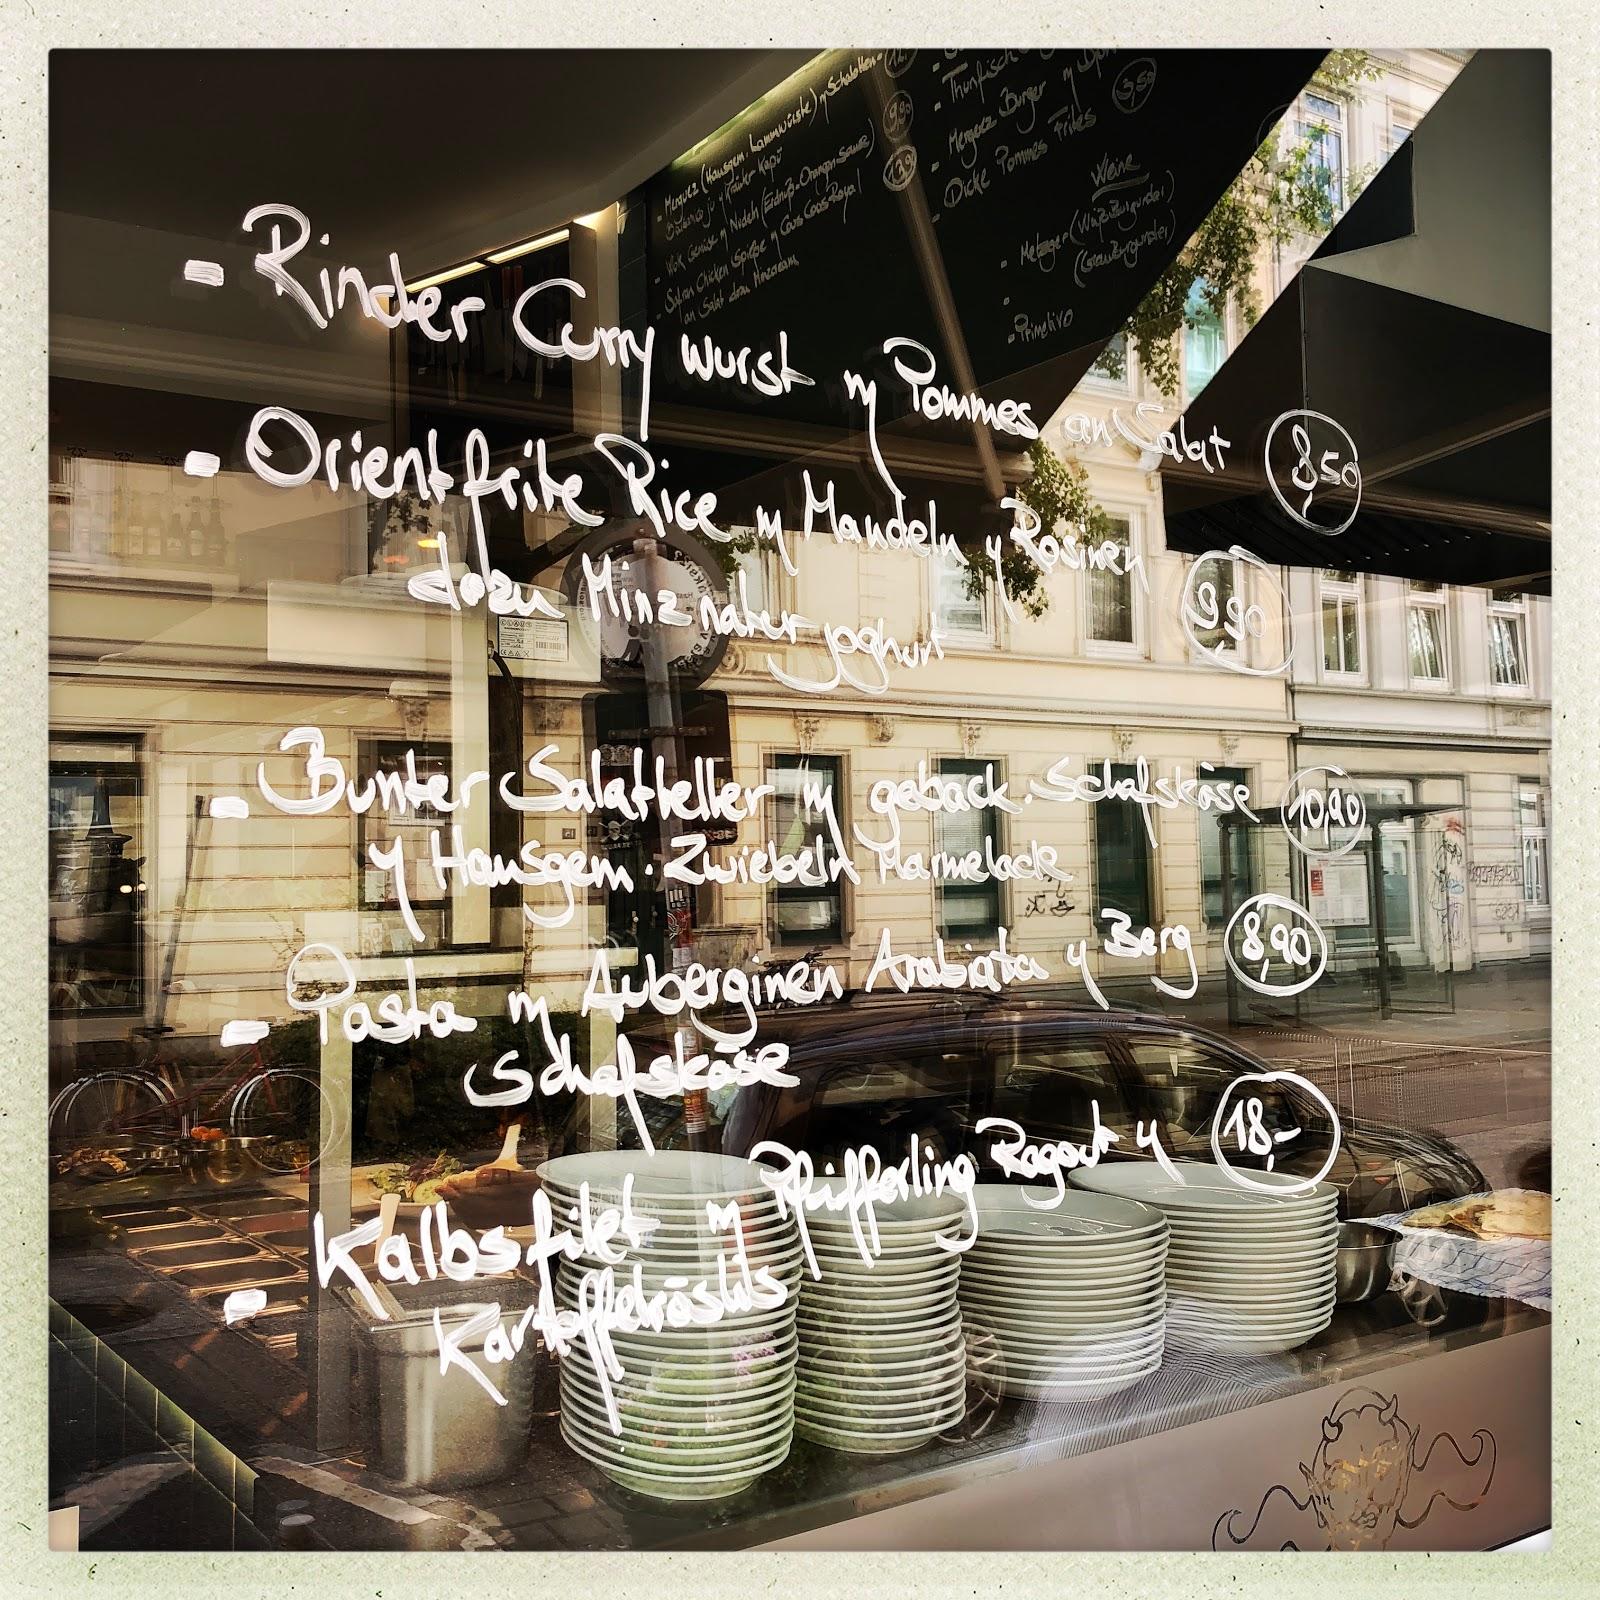 - Rinder Curry wurst m Pommes an Salat 8,50
- Orient frite Rice m Mandeln y Rosinen
dazu Minz natur joghurt 9,90
- Bunter Salatteller m geback. Schafskäse 10,90
y Hausgem. Zwiebeln Marmelade
- Pasta m Auberginen Arabiata y Berg 8,90
Schafskäse
- Kalbsfilet m Pfifferling Ragout y 18,-
Kartoffelröstis
- Merguez (Hausgem. Lammwürste) m Schalotten-
9,90
- Wok Gemüse m Nudeln (Erdnuß-Orangen Sauce)
- Safran Chicken Spieße m Cous Cous Royal
an Salat dazu Minzcream
- Thunfisch
- Merguez Burger m
- Dicke Pommes Frites 3,50
Weine
- Metzger (Weißburgunder)
(Grauburgunder)
- Primitivo